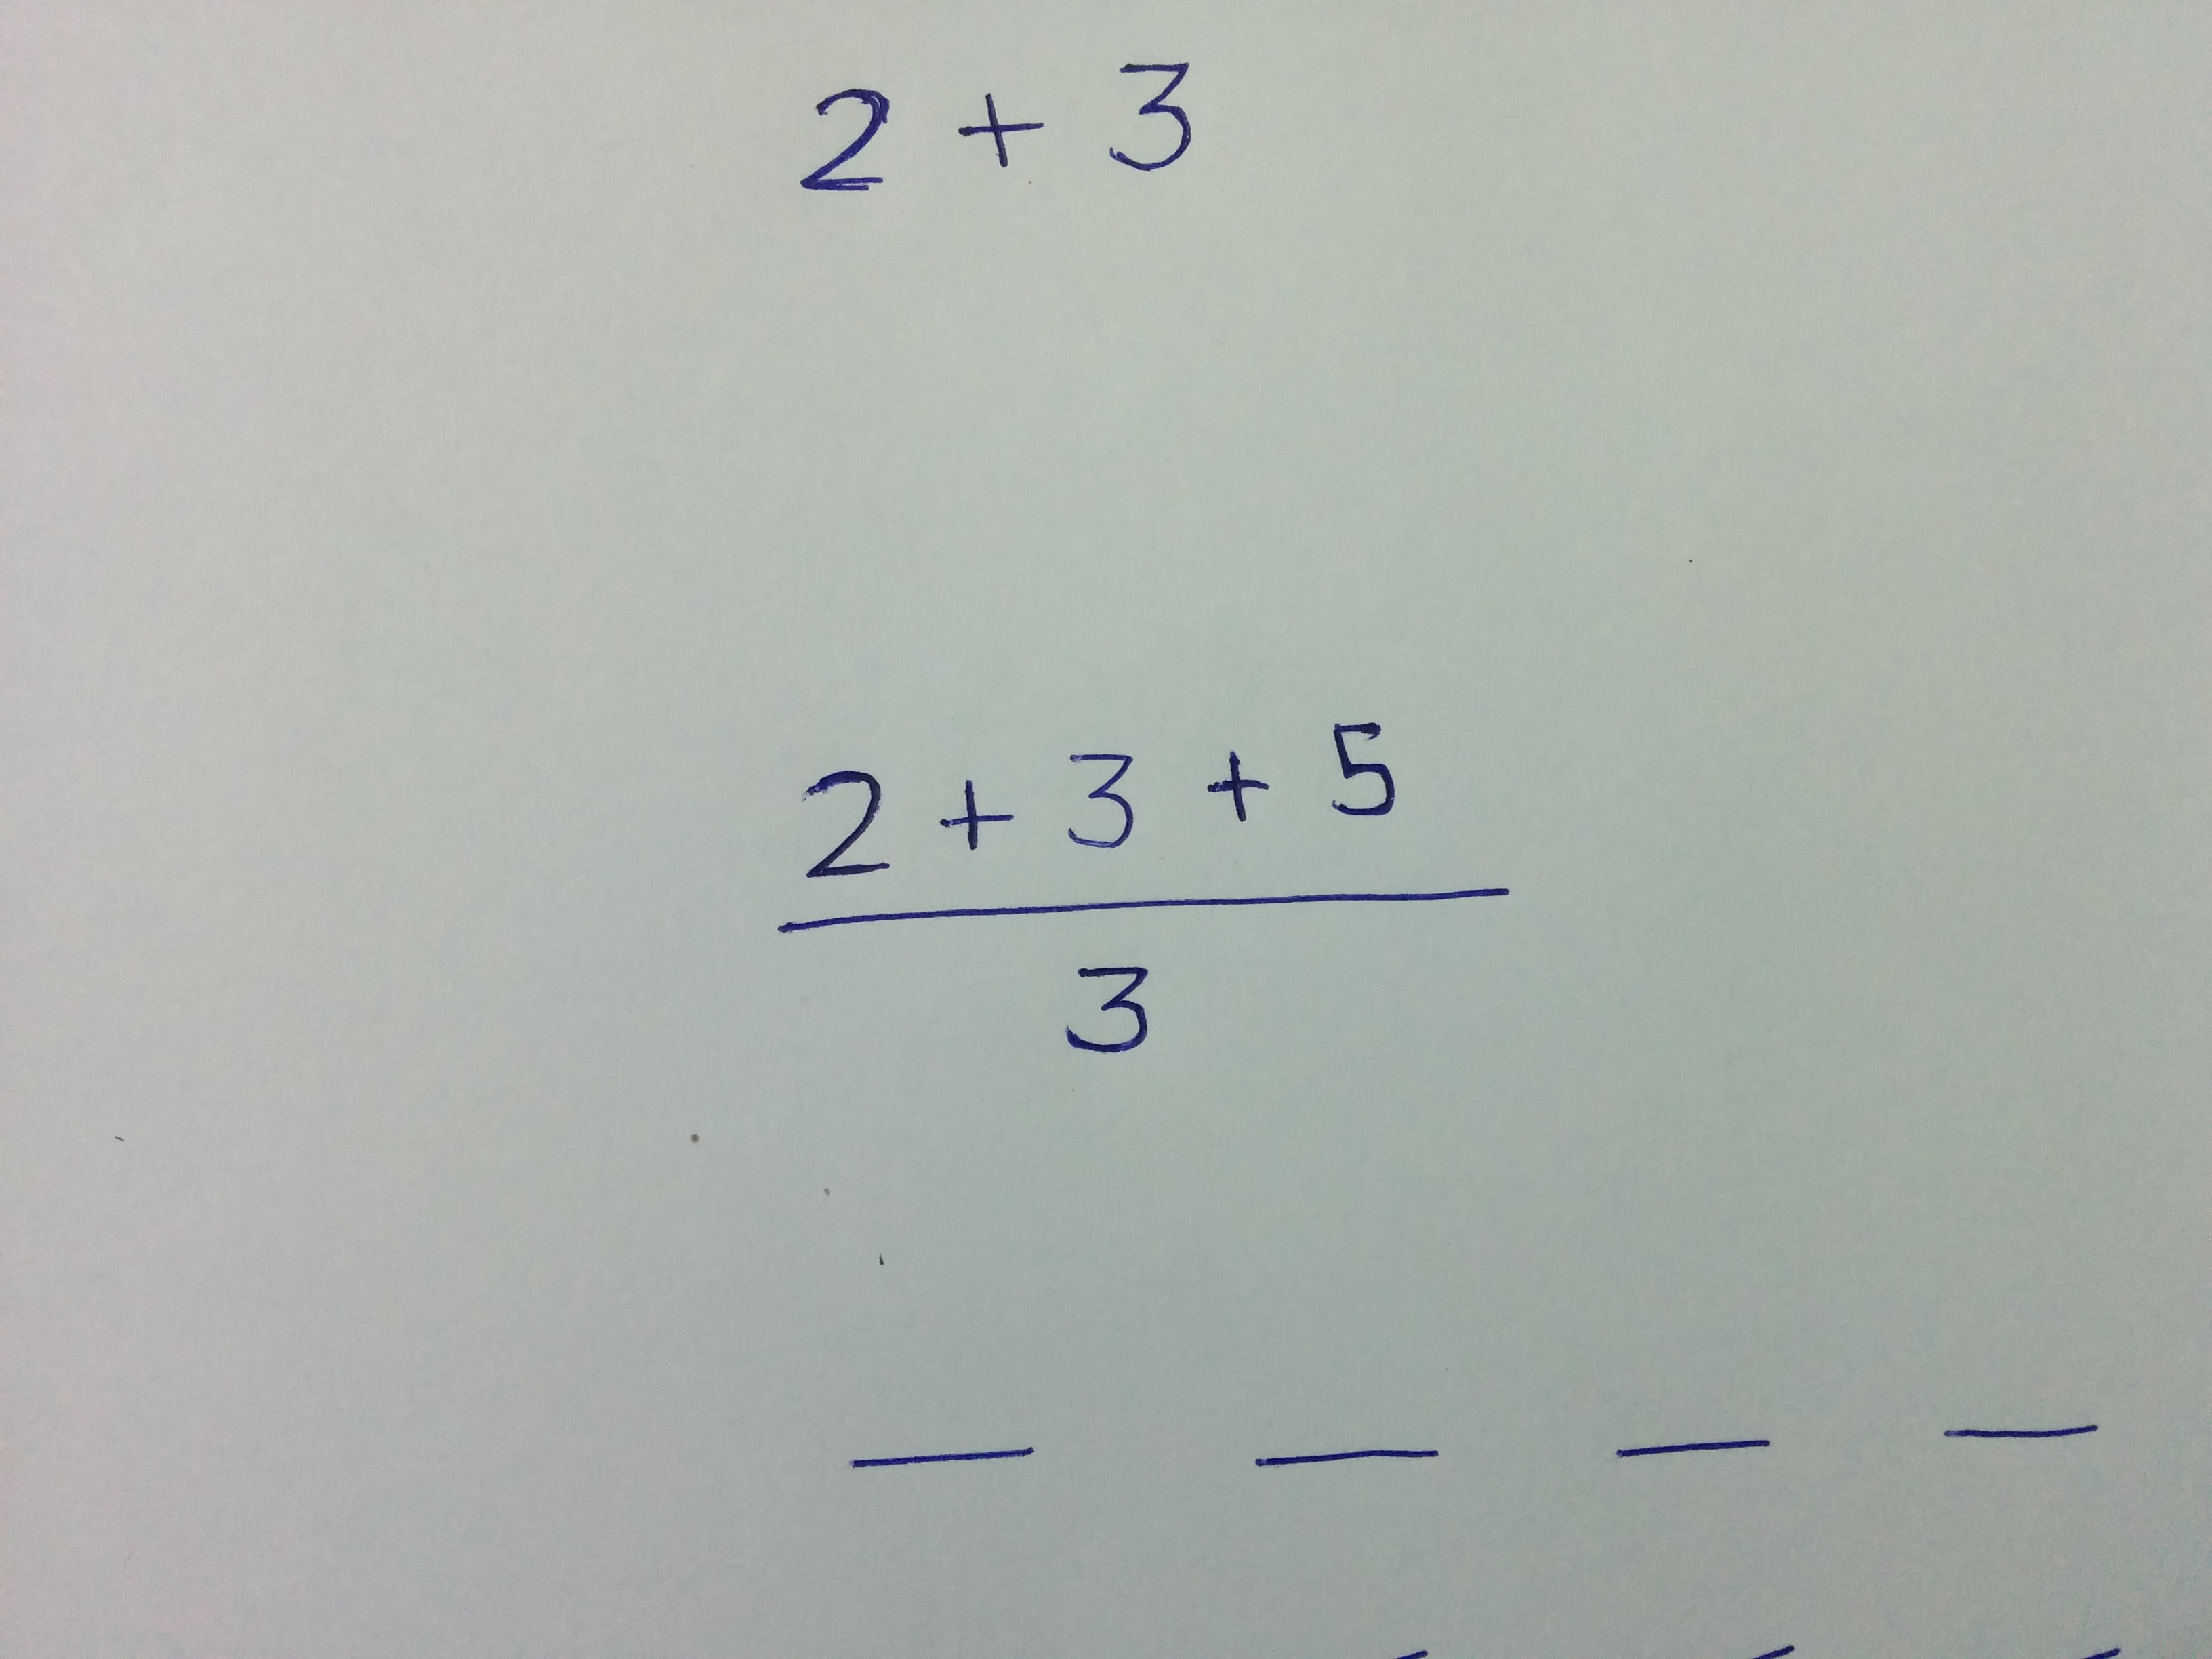 2 + 3
2 + 3 + 5
3
— — — —